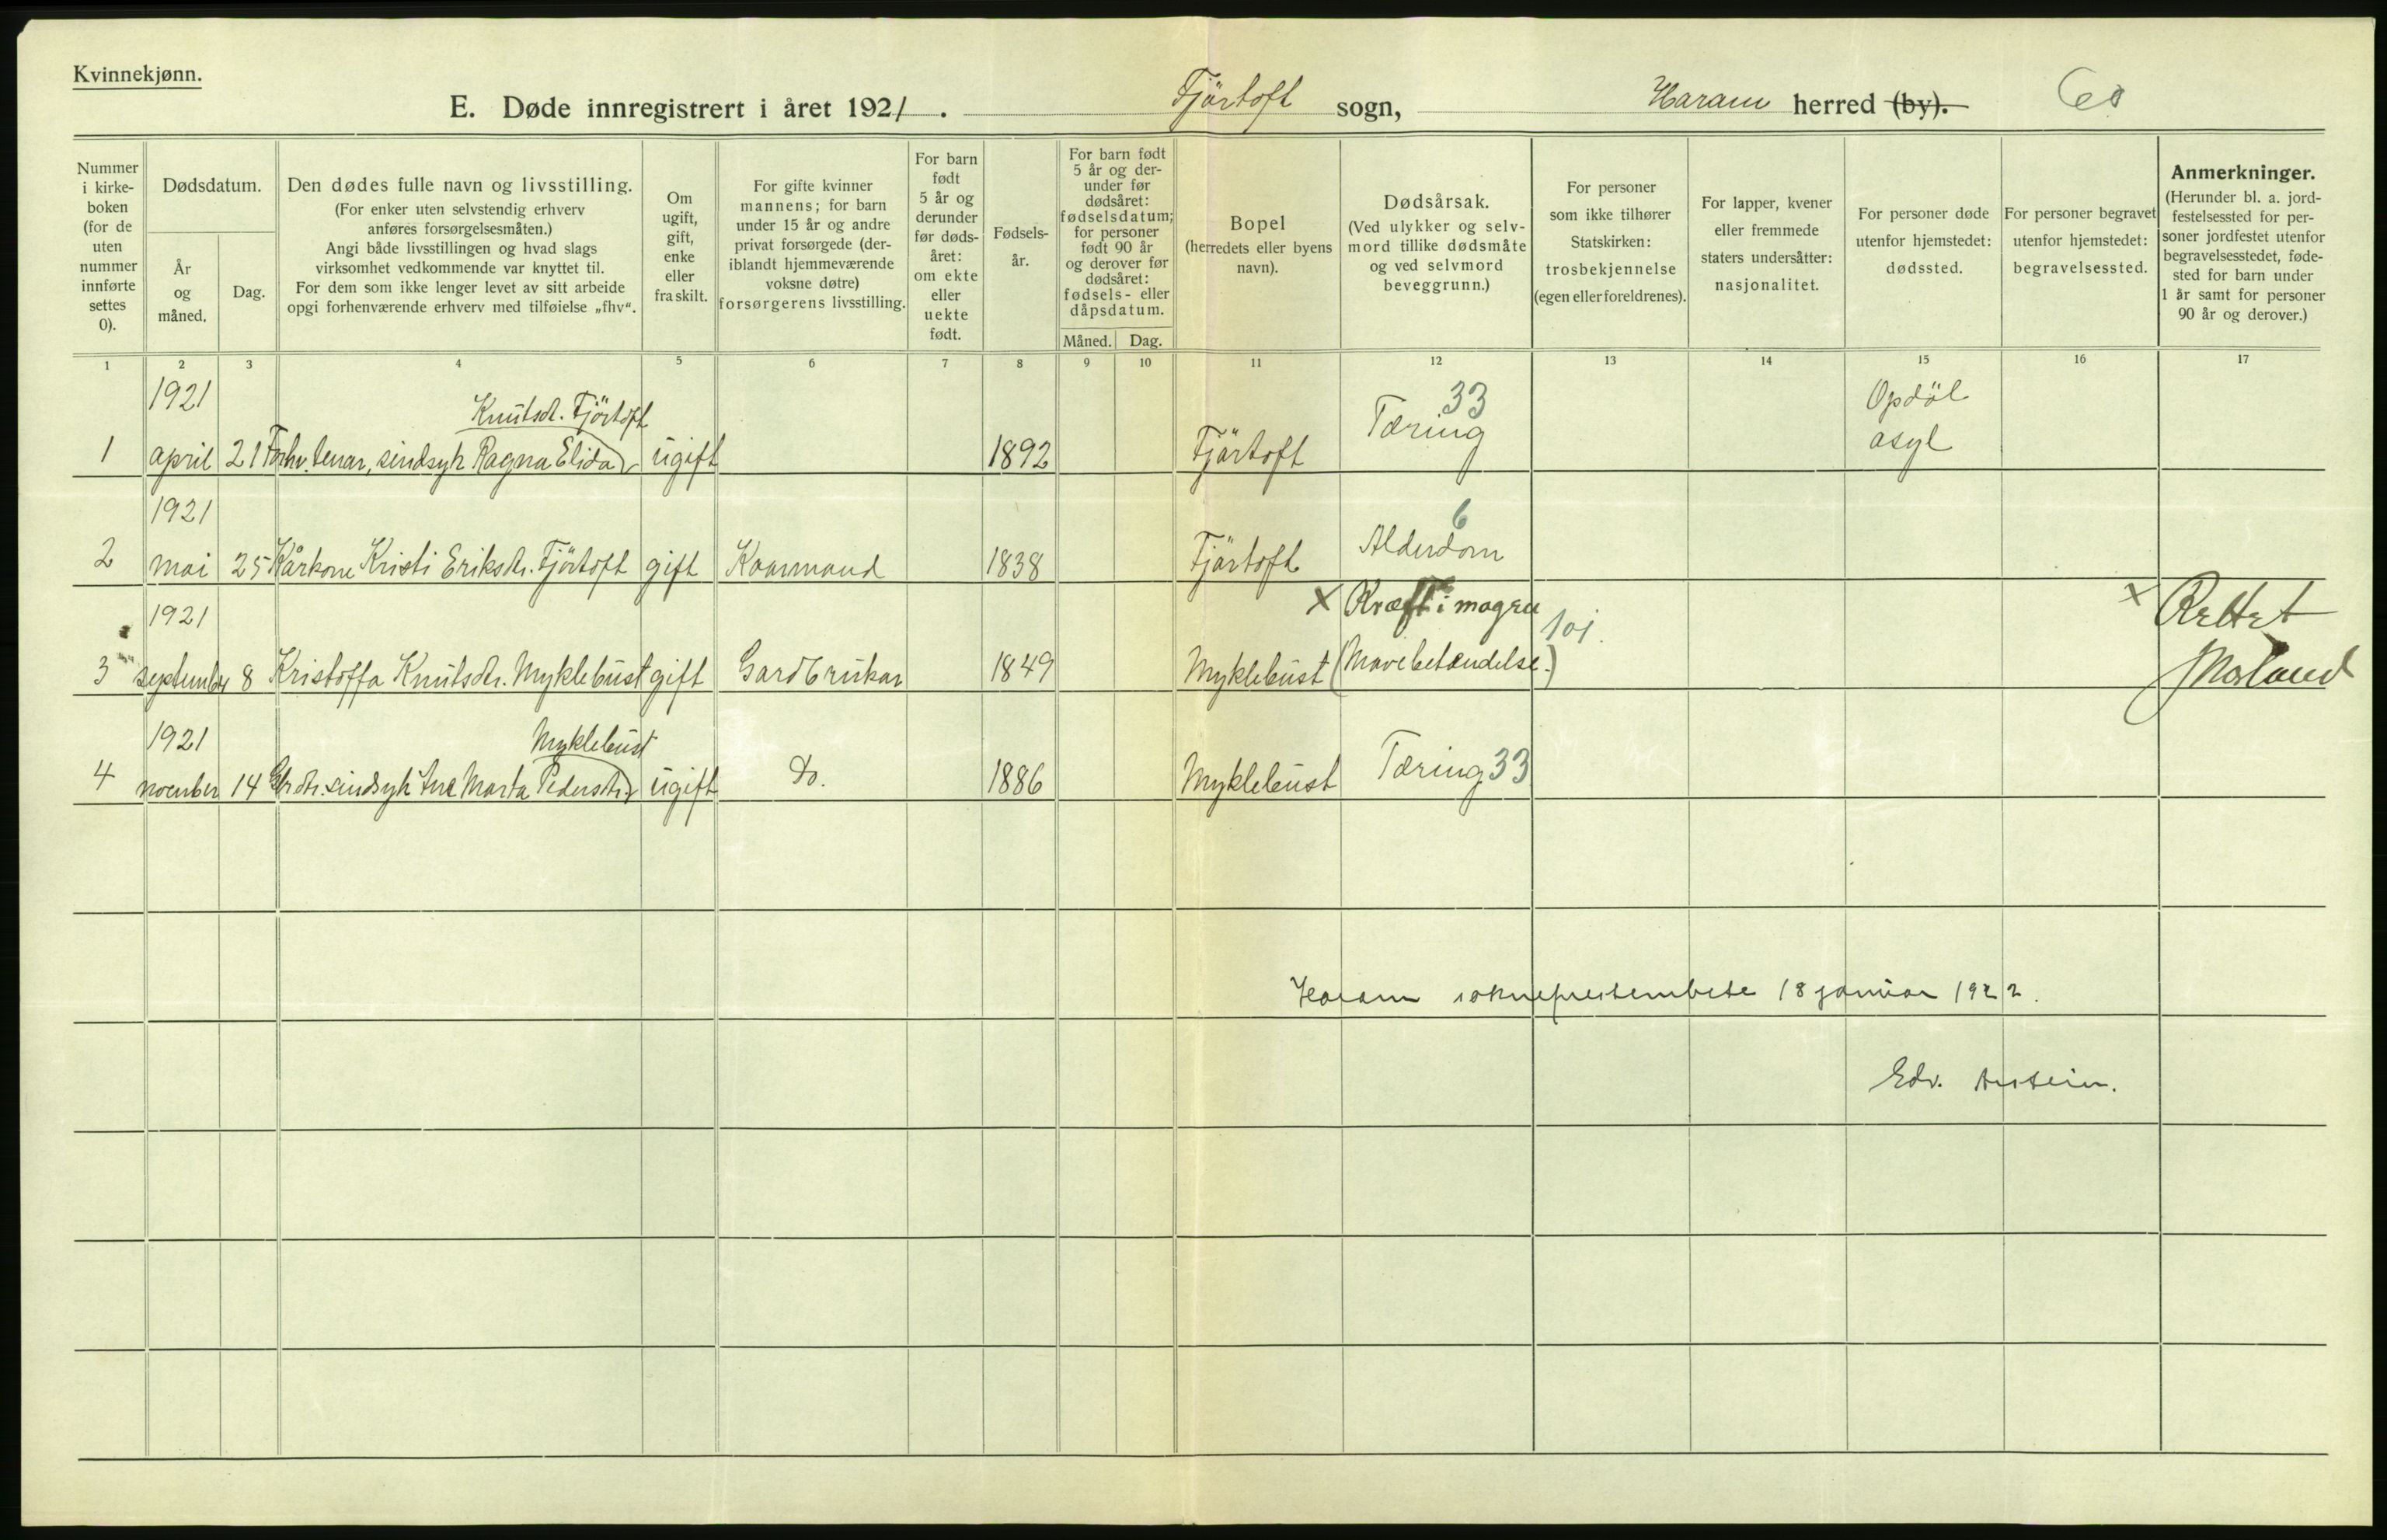 Kvinnekjønn.
E. Døde innregistrert i året 1921. Fjörtoft sogn, Haram herred (by).
Nummer i kirkeboken (for de uten nummer innførte settes 0).
Dødsdatum.
År og måned.
Dag.
Den dødes fulle navn og livsstilling.
(For enker uten selvstendig erhverv anføres forsørgelsesmåten.)
Angi både livsstillingen og hvad slags virksomhet vedkommende var knyttet til.
For dem som ikke lenger levet av sitt arbeide opgi forhenværende erhverv med tilføielse „fhv“.
Om ugift, gift, enke eller fraskilt.
For gifte kvinner mannens; for barn under 15 år og andre privat forsørgede (deriblandt hjemmeværende voksne døtre) forsørgerens livsstilling.
For barn født 5 år og derunder før dødsåret: om ekte eller uekte født.
Fødselsår.
For barn født 5 år og derunder før dødsåret: fødselsdatum; for personer født 90 år og derover før dødsåret: fødsels- eller dåpsdatum.
Måned. Dag.
Bopel
(herredets eller byens navn).
Dødsårsak.
(Ved ulykker og selvmord tillike dødsmåte og ved selvmord beveggrunn.)
For personer som ikke tilhører Statskirken: trosbekjennelse (egen eller foreldrenes).
For lapper, kvener eller fremmede staters undersåtter: nasjonalitet.
For personer døde utenfor hjemstedet: dødssted.
For personer begravet utenfor hjemstedet: begravelsessted.
Anmerkninger.
(Herunder bl. a. jordfestelsessted for personer jordfestet utenfor begravelsesstedet, fødested for barn under 1 år samt for personer 90 år og derover.)
1 2 3 4 5 6 7 8 9 10 11 12 13 14 15 16 17
1921 Knutsdt. Fjörtoft 33 Opdöl
1 april 21 Forhv. tenar, sindsyk Ragna Elida ugift 1892 Fjörtoft Tæring asyl
1921 6
2 mai 25 Kårkone Kristi Eriksdt. Fjörtoft gift Kaarmand 1838 Fjörtoft Alderdom
1921 x Kræft i magen 101. x Rettet
3 september 8 Kristoffa Knutsdtr. Myklebust gift Gardbrukar 1849 Myklebust (Mavebetændelse.)
1921 Myklebust
4 november 14 sindsyk Ane Marta Pedersdtr. ugift Do. 1886 Myklebust Tæring 33
Haram sokneprestembete 18 januar 1922.
Edv.